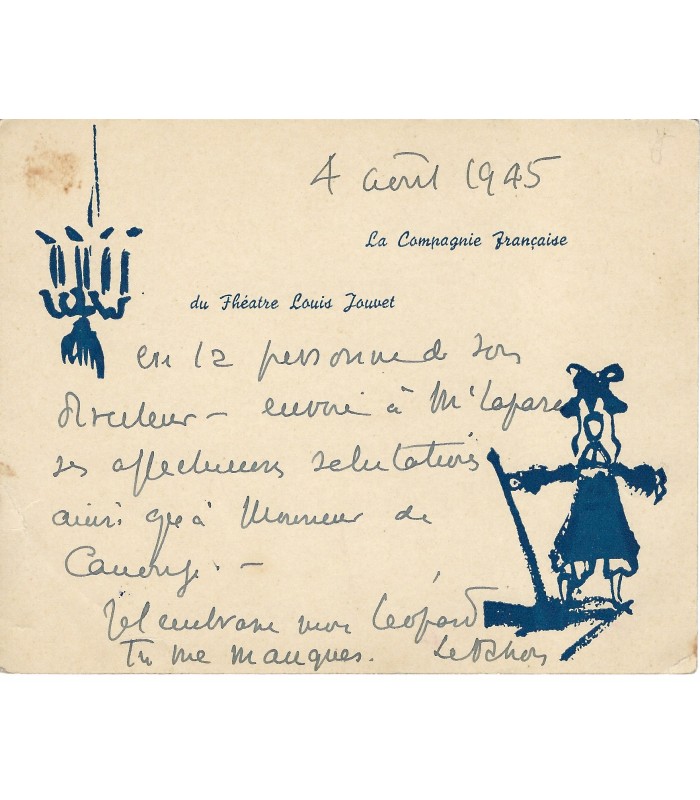 4 août 1945
La Compagnie Française
du Théatre Louis Jouvet
en la personne de son
directeur — envoie à Mr Lapara
ses affectueuses salutations
ainsi que à Monsieur de
—
Je t'embrasse mon Léopard
Tu me manques.